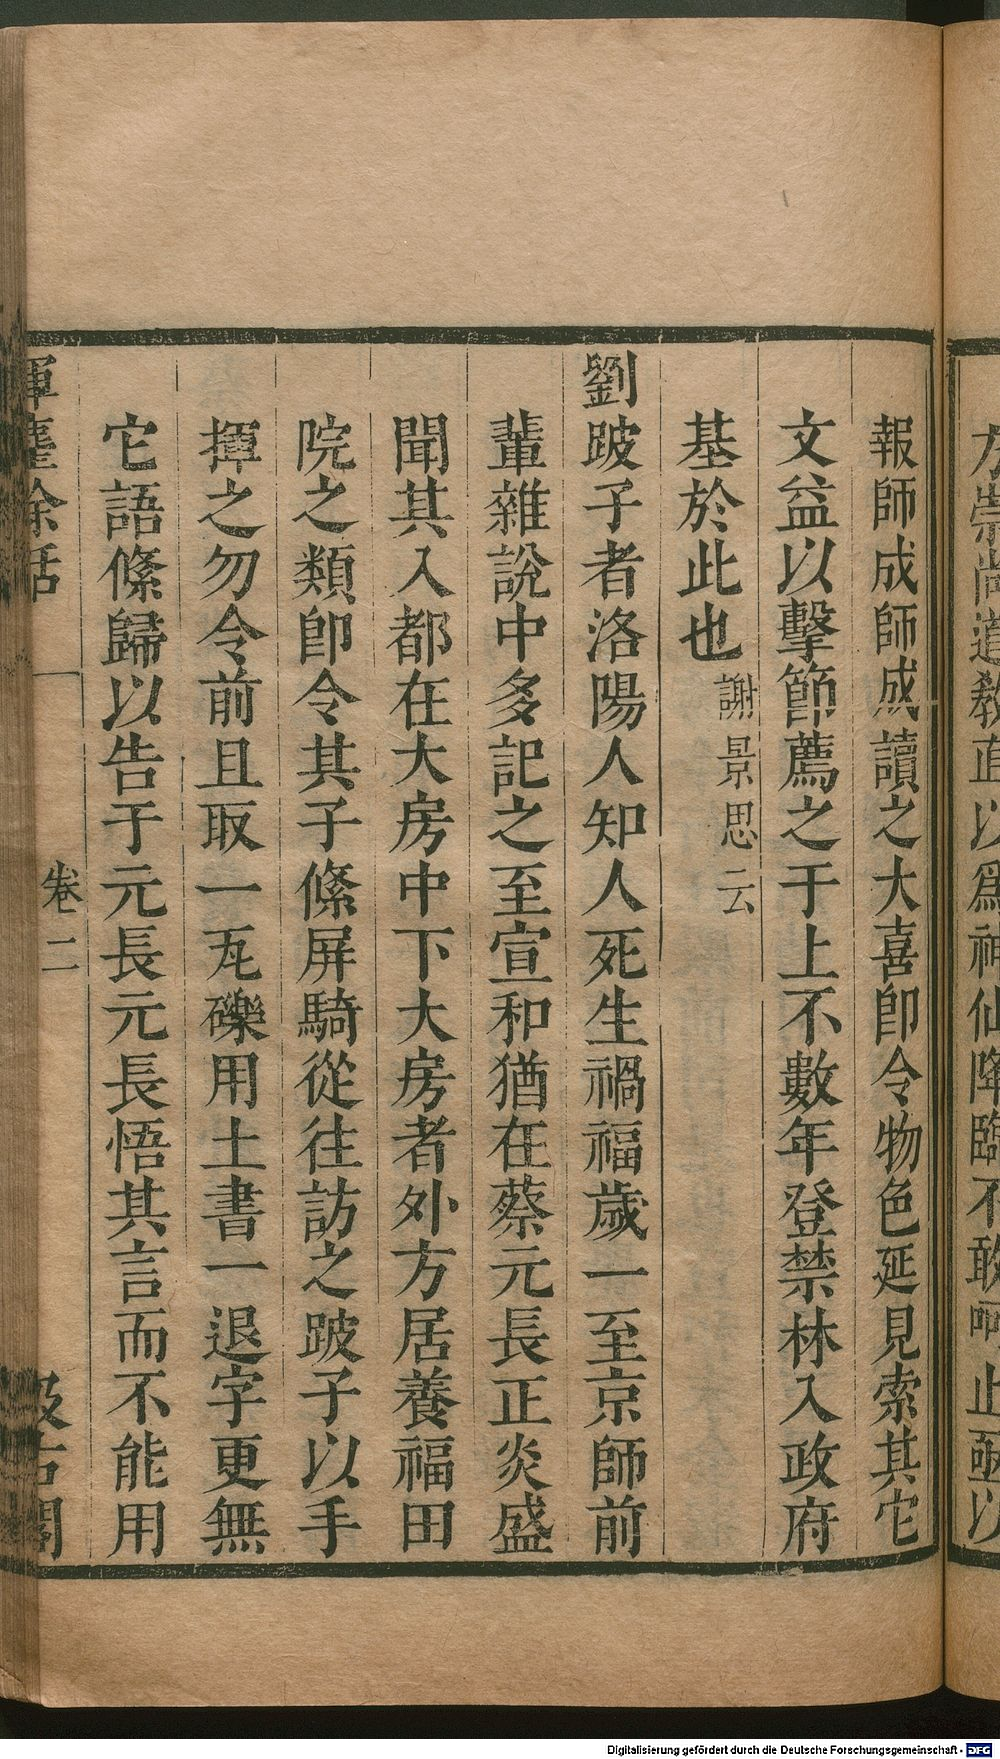 方崇尚道教直以爲神仙降臨不敢呵止亟以
報師成師成讀之大喜卽令物色延見索其它
文益以擊節薦之于上不數年登禁林入政府
基於此也謝景思云
劉跛子者洛陽人知人死生禍福歲一至京師前
輩雜說中多記之至宣和猶在蔡元長正炎盛
聞其入都在大房中下大房者外方居養福田
院之類卽令其子絛屏騎從往訪之跛子以手
揮之勿令前且取一瓦礫用土書一退字更無
它語絛歸以告于元長元長悟其言而不能用
揮麈余話
卷二
汲古閣
Digitalisierung gefördert durch die Deutsche Forschungsgemeinschaft - DFG